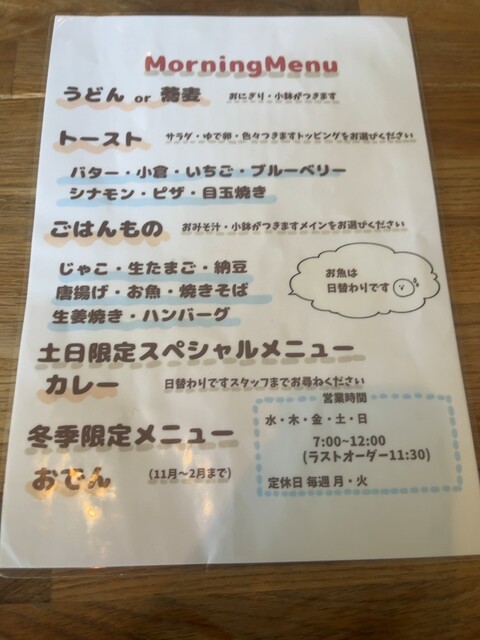 MorningMenu
うどん or 蕎麦 おにぎり・小鉢がつきます
トースト サラダ・ゆで卵・色々つきますトッピングをお選びください
バター・小倉・いちご・ブルーベリー
シナモン・ピザ・目玉焼き
ごはんもの おみそ汁・小鉢がつきますメインをお選びください
じゃこ・生たまご・納豆
唐揚げ・お魚・焼きそば
生姜焼き・ハンバーグ
お魚は
日替わりです
土日限定スペシャルメニュー
カレー 日替わりですスタッフまでお尋ねください
冬季限定メニュー
おでん (11月〜2月まで)
営業時間
水・木・金・土・日
7:00~12:00
(ラストオーダー11:30)
定休日 毎週 月・火